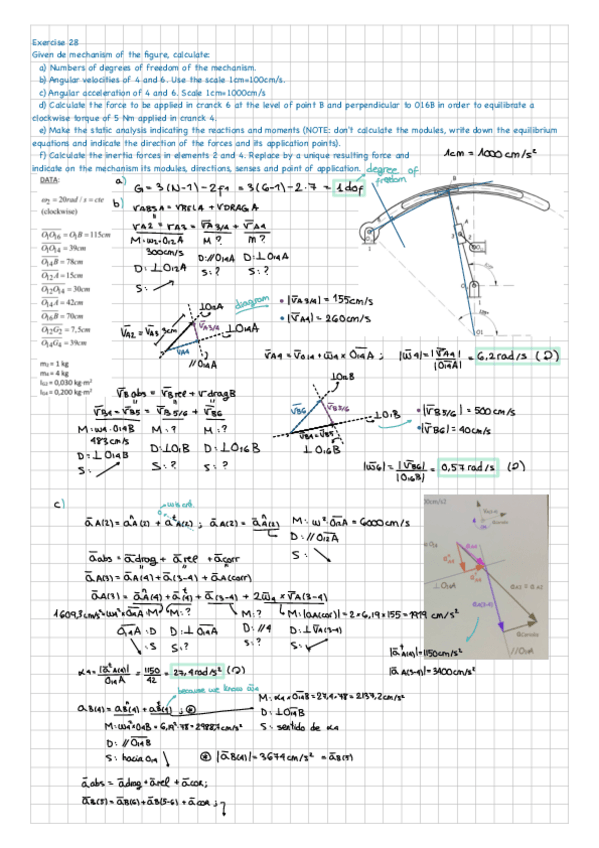 Exercise 28
Given de mechanism of the figure, calculate:
a) Numbers of degrees of freedom of the mechanism.
b) Angular velocities of 4 and 6. Use the scale 1cm=100cm/s.
c) Angular acceleration of 4 and 6. Scale 1cm=1000cm/s
d) Calculate the force to be applied in cranck 6 at the level of point B and perpendicular to O16B in order to equilibrate a
clockwise torque of 5 Nm applied in cranck 4.
e) Make the static analysis indicating the reactions and moments (NOTE: don't calculate the modules, write down the equilibrium
equations and indicate the direction of the forces and its application points).
f) Calculate the inertia forces in elements 2 and 4. Replace by a unique resulting force and
indicate on the mechanism its modules, directions, senses and point of application.
1cm = 1000 cm/s²
DATA:
ω₂ = 20rad / s = cte
(clockwise)
O₁O₁₆ = O₁B = 115cm
O₁O₁₄ = 39cm
O₁₄B = 78cm
O₁₂A = 15cm
O₁₂O₁₄ = 30cm
O₁₄A = 42cm
O₁₆B = 70cm
O₁₂G₂ = 7,5cm
O₁₄G₄ = 39cm
m₂ = 1 kg
m₄ = 4 kg
I_G2 = 0,030 kg·m²
I_G4 = 0,200 kg·m²
a) G = 3(N-1) - 2f1 = 3(6-1) - 2·7 = 1 dof
degree of freedom
b) VABSA = VRELA + VDRAG A
VA2 = VA3 = VA3/4 + VA4
M: ω2·O12A M? m?
300cm/s
D: ⊥O12A D: //O14A D: ⊥O14A
S: S: ? S: ?
diagram
VA2 = VA3 3cm
⊥O12A
VA3/4
⊥O14A
VA4
//O14A
|VA3/4| = 155cm/s
|VA4| = 260cm/s
VA4 = VO14 + ω4 × O14A ; |ω4| = |VA4| / |O14A| = 6,2 rad/s
VB abs = VB rel + V drag B
VB4 = VB5 = VB5/6 + VB6
M: ω4·O14B M: ? M: ?
483 cm/s
D: ⊥O14B D: ⊥O1B D: ⊥O16B
S: S: ? S: ?
⊥O12B
VB6
VB5/6
⊥O1B
VB4 = VB5
⊥O16B
|VB5/6| = 500 cm/s
|VB6| = 40cm/s
|ω6| = |VB6| / |O16B| = 0,57 rad/s
c)
aA(2) = aⁿA(2) + aᵗA(2) ; aA(2) = aⁿA(2) M: ω²·O12A = 6000 cm/s
D: //O12A
S:
aabs = adrag + arel + acorr
aA(3) = aA(4) + aA(3-4) + aA(corr)
aA(3) = aⁿA(4) + aᵗA(4) + aA(3-4) + 2ω4 × VA(3-4)
1609,3cm/s² = ω4²×O14A : M M: ? M: ? M: |aA(cor)| = 2×6,19×155 = 1919 cm/s²
O14A : D D: ⊥O14A D: //4 D: ⊥VA(3-4)
: S S: ? S: ? S:
10cm/s2
⊥O14A
//O14A
|aᵗA(4)| = 1150cm/s
|aA(3-4)| = 3400cm/s²
α4 = |aᵗA(4)| / O14A = 1150 / 42 = 27,4 rad/s²
aB(4) = aⁿB(4) + aᵗB(4) ;
M: α4×O14B = 27,4·78 = 2137,2cm/s²
D: ⊥O14B
S: sentido de α4
M: ω4²×O4B = 6,19²·78 = 2988,7cm/s²
D: //O14B
S: hacia O14 |aB(4)| = 3674cm/s² = aB(5)
aabs = adrag + arel + acor;
aB(5) = aB(6) + aB(5-6) + acor ;